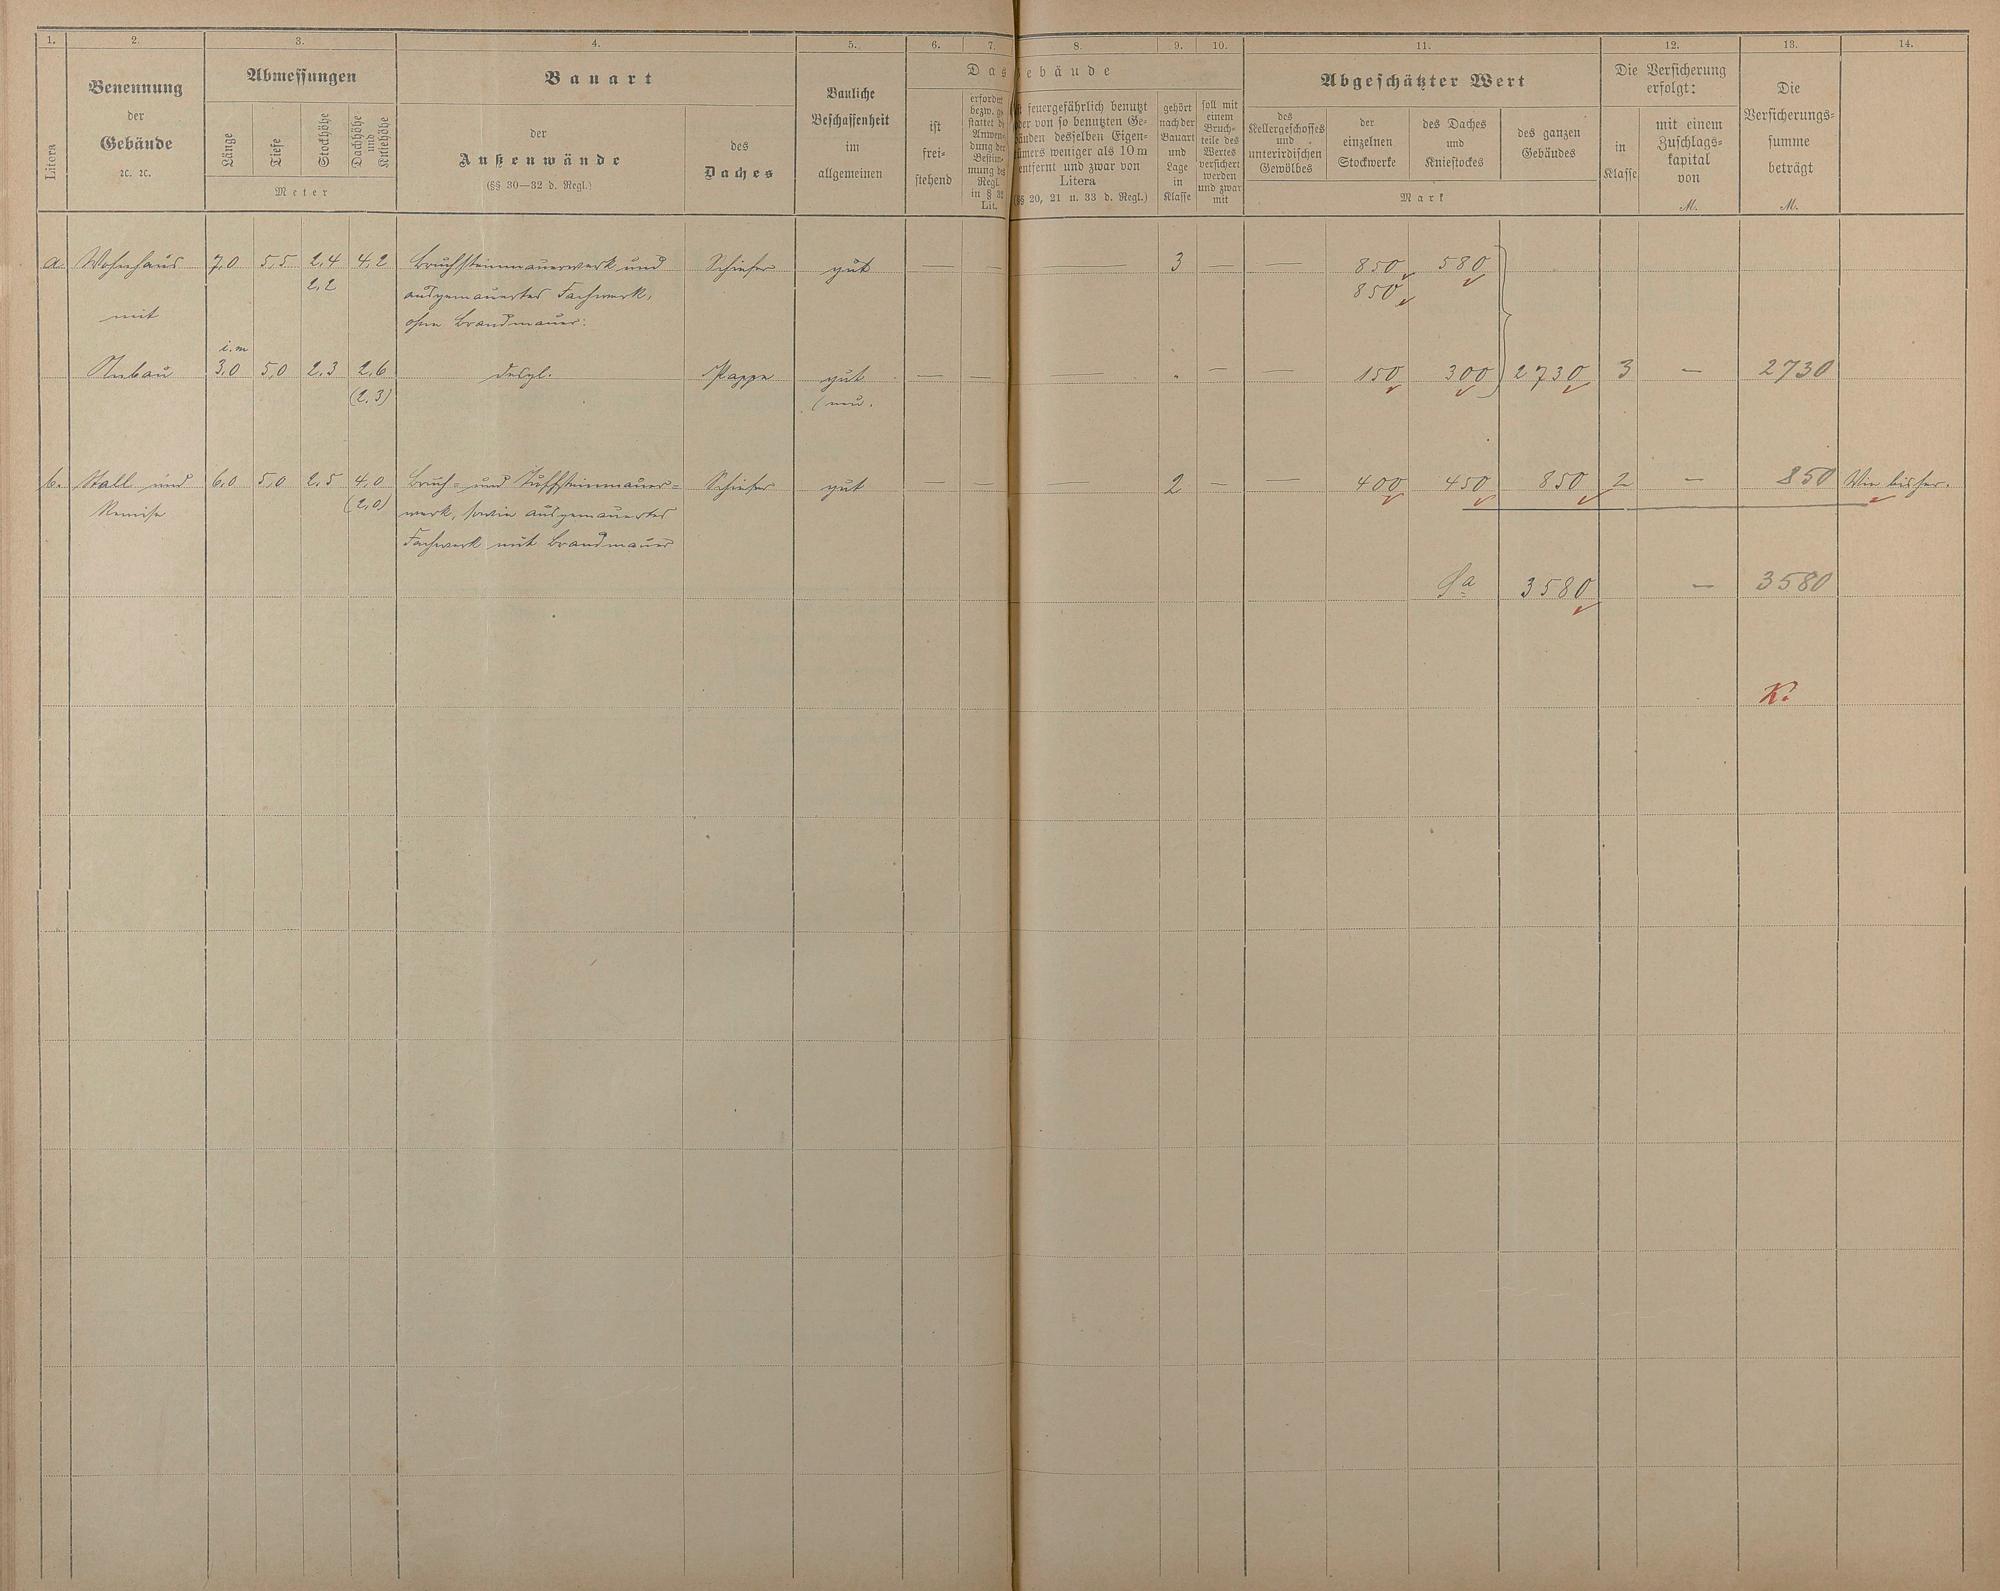 1. 2. 3. 4. 5. 6. 7. 8. 9. 10. 11. 12. 13. 14.
Litera
Benennung
der
Gebäude
ꝛc. ꝛc.
Abmessungen
Länge
Tiefe
Stockhöhe
Dachhöhe
und
Kniehöhe
Meter
Bauart
der
Außenwände
(§§ 30—32 d. Regl.)
des
Daches
Bauliche
Beschaffenheit
im
allgemeinen
Das Gebäude
ist
frei-
stehend
erfordert
bezw. ge
stattet d
Anwen-
dung der
Bestim-
mung des
Regl.
in § 32
Lit.
feuergefährlich benutzt
der von so benutzten Ge-
äuden desselben Eigen-
tümers weniger als 10 m
entfernt und zwar von
Litera
(§§ 20, 21 u. 33 d. Regl.)
gehört
nach der
Bauart
und
Lage
in
Klasse
soll mit
einem
Bruch-
teile des
Wertes
versichert
werden
und zwar
mit
Abgeschätzter Wert
des
Kellergeschosses
und
unterirdischen
Gewölbes
der
einzelnen
Stockwerke
des Daches
und
Kniestockes
des ganzen
Gebäudes
Mark
Die Versicherung
erfolgt:
in
Klasse
mit einem
Zuschlags-
kapital
von
M.
Die
Versicherungs-
summe
beträgt
M.
a. Wohnhaus 7,0 5,5 2,4 4,2 Bruchsteinmauerwerk und Schiefer gut — — — 3 — — 850 580
2,2 ausgemauertes Fachwerk, 850
mit ohne Brandmauer.
i. m
Anbau 3,0 5,0 2,3 2,6 desgl. Pappe gut — — — " — — 150 300 2730 3 — 2730
(2,3) (neu.
b. Stall und 6,0 5,0 2,5 4,0 Bruch- und Tuffsteinmauer- Schiefer gut — — — 2 — — 400 450 850 2 — 850 Wie bisher.
Remise (2,0) werk, sowie ausgemauertes
Fachwerk mit Brandmauer
Sa 3580 — 3580
K.